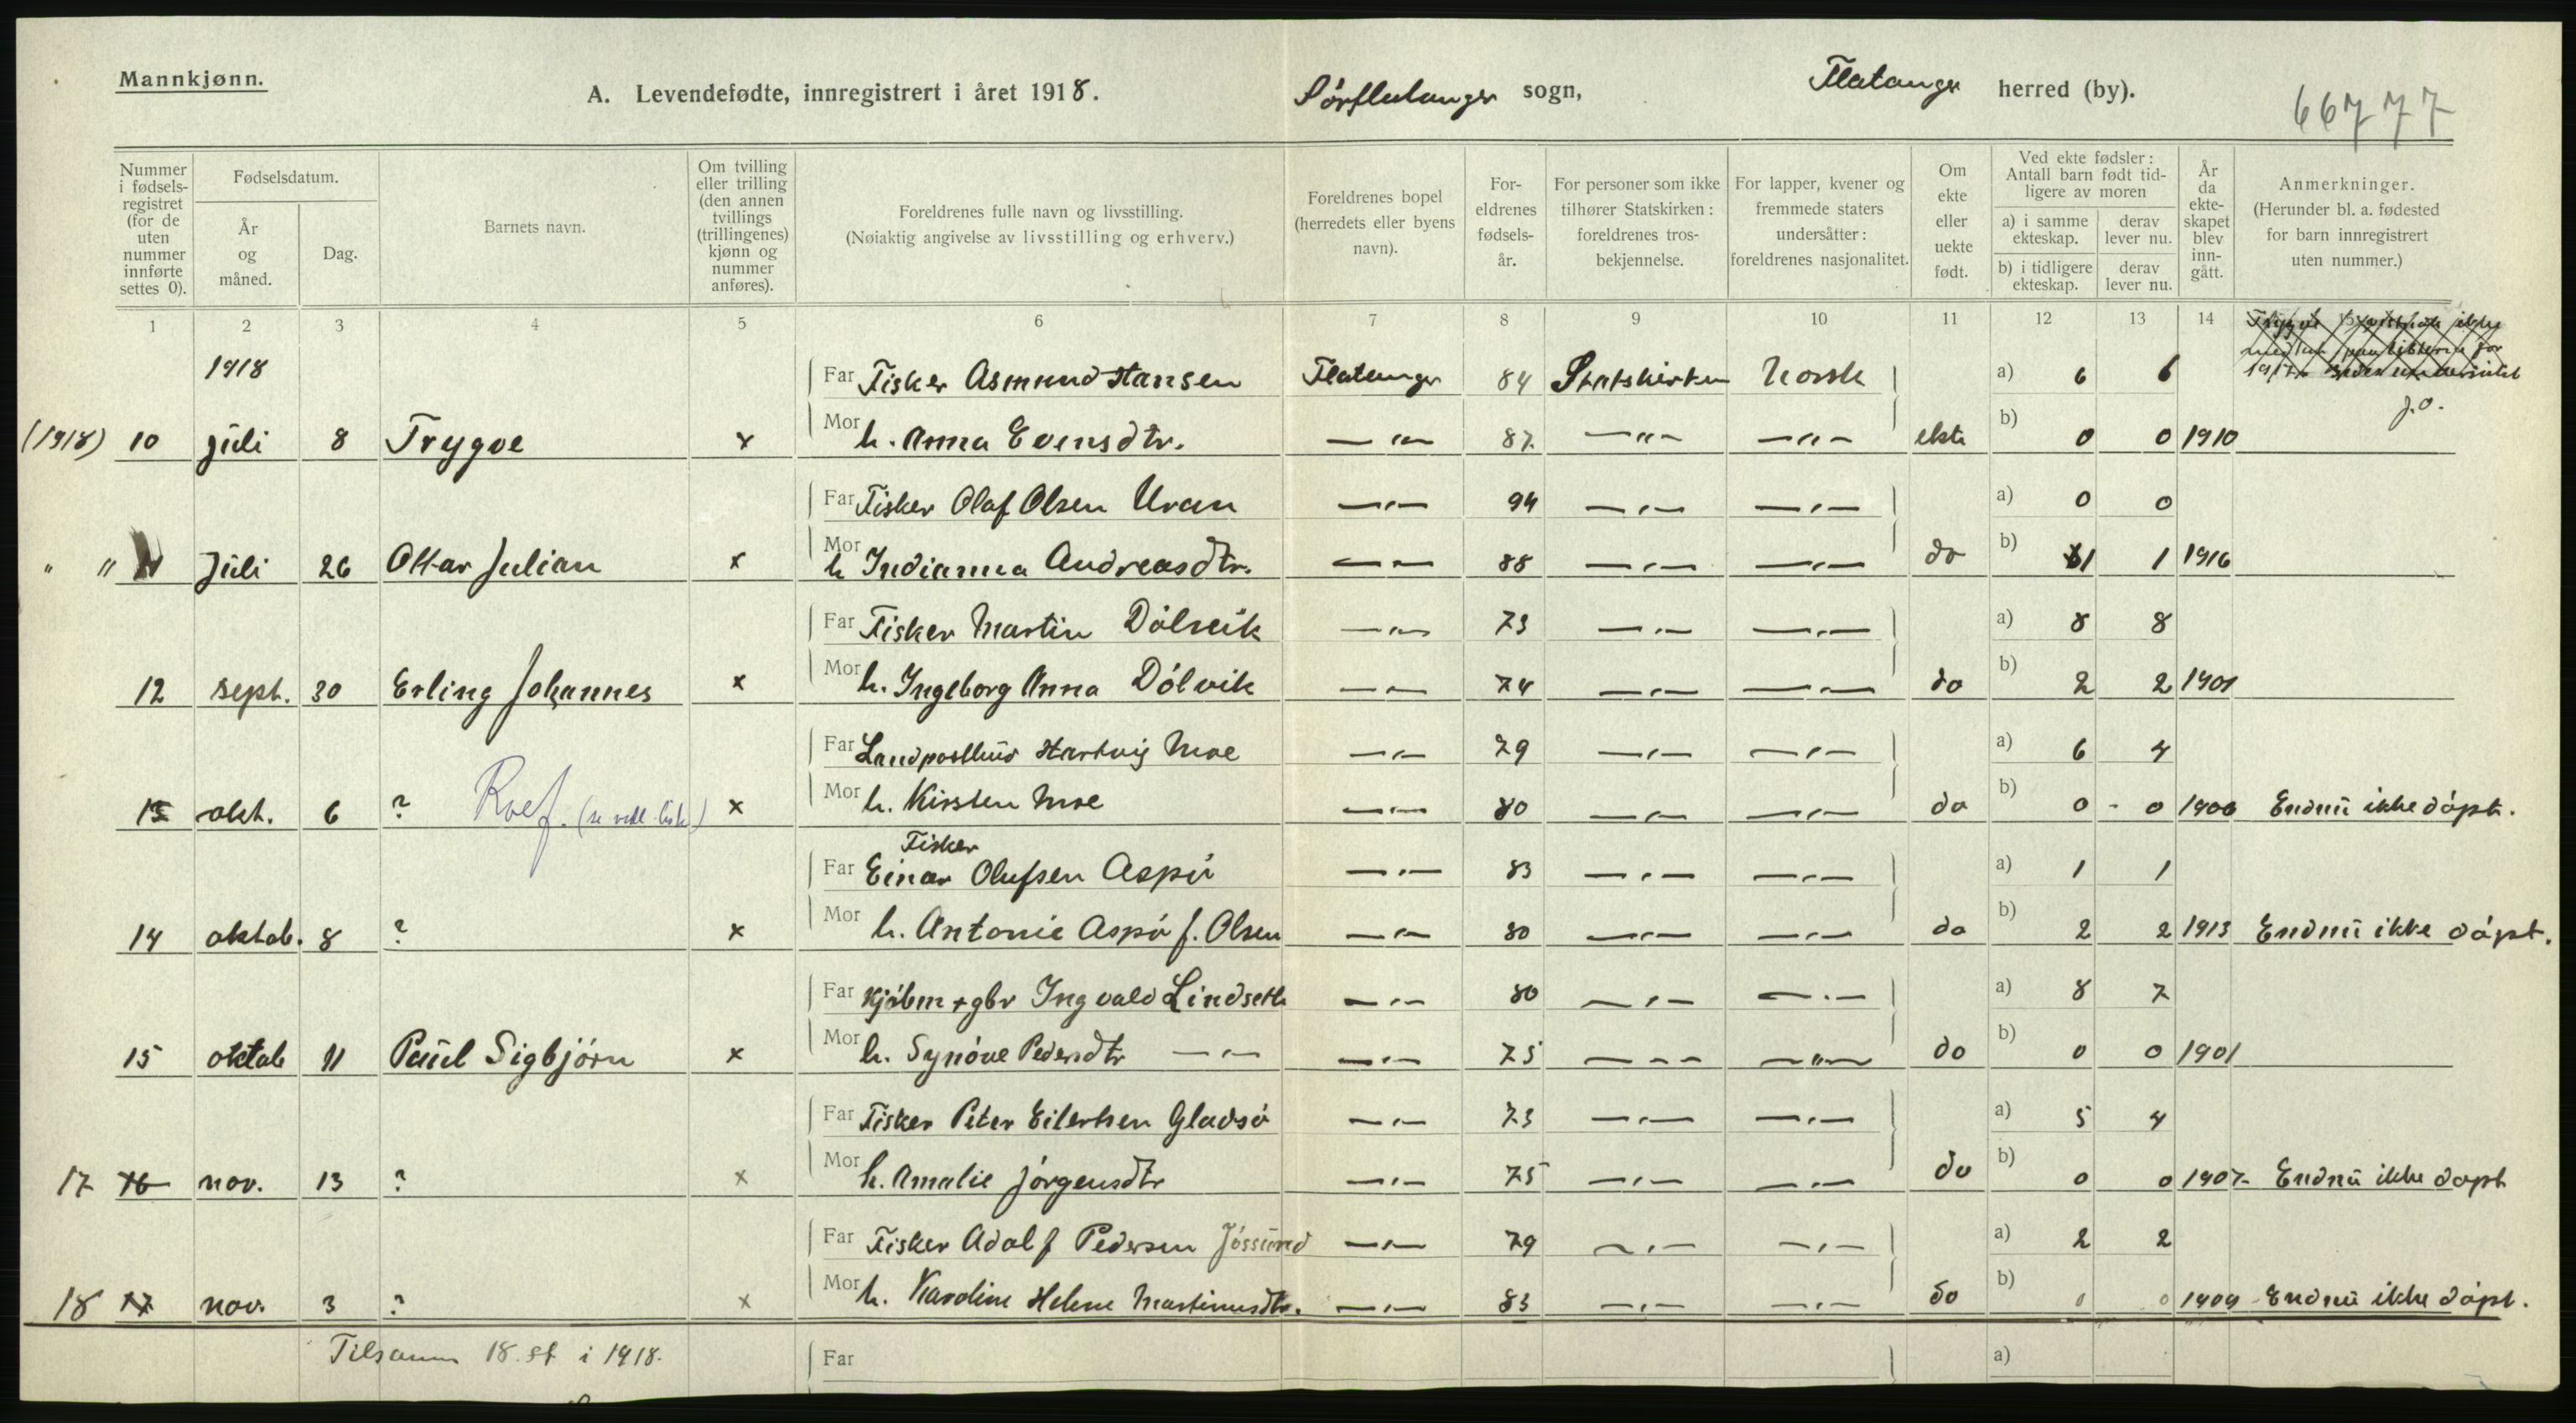 Mannkjønn.
A. Levendefødte, innregistrert i året 1918. Sørflatanger sogn, Flatanger herred (by).
66777
Nummer i fødsels-registret (for de uten nummer innførte settes 0).
Fødselsdatum.
År og måned.
Dag.
Barnets navn.
Om tvilling eller trilling (den annen tvillings (trillingenes) kjønn og nummer anføres).
Foreldrenes fulle navn og livsstilling.
(Nøiaktig angivelse av livsstilling og erhverv.)
Foreldrenes bopel (herredets eller byens navn).
For-eldrenes fødsels-år.
For personer som ikke tilhører Statskirken: foreldrenes tros-bekjennelse.
For lapper, kvener og fremmede staters undersåtter: foreldrenes nasjonalitet.
Om ekte eller uekte født.
Ved ekte fødsler: Antall barn født tid-ligere av moren
a) i samme ekteskap.
derav lever nu.
b) i tidligere ekteskap.
derav lever nu.
År da ekte-skapet blev inn-gått.
Anmerkninger.
(Herunder bl. a. fødested for barn innregistrert uten nummer.)
1 2 3 4 5 6 7 8 9 10 11 12 13 14
1918 Far Fisker Asmund Hansen Flatanger 84 Statskirken Norsk a) 6 6
J.O.
(1918) 10 juli 8 Trygve x Mor h. Anna Evensdtr. — " — 87 — " — — " — ekte b) 0 0 1910
Far Fisker Olaf Olsen Uran — " — 94 — " — — " — a) 0 0
" " 11 Juli 26 Ottar Julian x Mor h Indianna Andreasdtr. — " — 88 — " — — " — do b) 1 1 1916
Far Fisker Martin Dølvik — " — 73 — " — — " — a) 8 8
12 sept. 30 Erling Johannes x Mor h. Ingeborg Anna Dølvik — " — 74 — " — — " — do b) 2 2 1901
Far Landpostbud Hartvig Moe — " — 79 — " — — " — a) 6 4
13 okt. 6 ? Roef. (se vedl. liste) x Mor h. Kirsten Moe — " — 80 — " — — " — do b) 0 - 0 1906 Endnu ikke døpt.
Fisker
Far Einar Olufsen Aspø — " — 83 — " — — " — a) 1 1
14 oktob. 8 ? x Mor h. Antonie Aspø f. Olsen — " — 80 — " — — " — do b) 2 2 1913 Endnu ikke døpt.
Far Kjøbm + gbr Ingvald Lindseth — " — 80 — " — — " — a) 8 7
15 oktob 11 Paul Sigbjørn x Mor h. Synøve Pedersdtr — " — — " — 75 — " — — " — do b) 0 0 1901
Far Fisker Peter Eilertsen Gladsø — " — 73 — " — — " — a) 5 4
17 16 nov. 13 ? x Mor h. Amalie Jørgensdtr — " — 75 — " — — " — do b) 0 0 1907- Endnu ikke døpt
Far Fisker Adolf Pedersen Jøssund — " — 79 — " — — " — a) 2 2
18 17 nov. 3 ? x Mor h. Karoline Helene Martinusdtr. — " — 83 — " — — " — do b) 0 0 1909 - Endnu ikke døpt.
Tilsamm 18 st i 1918. Far a)